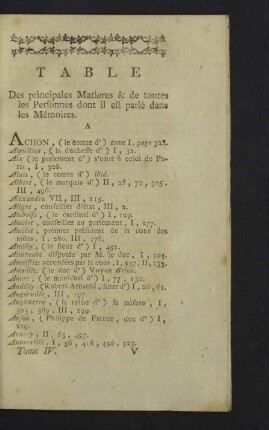 TABLE
Des principales Matieres & de toutes
les Personnes dont il est parlé dans
les Mémoires.
A
ACHON, (le comte d') tome I, page 328.
Aiguillon, (la duchesse d') I, 32.
Aix (le parlement d') s'unit à celui de Pa-
ris, I, 326.
Alais, (le comte d') Ibid.
Albret, (le marquis d') II, 28, 70, 305.
III, 496.
Alexandre VII, III, 115.
Aligre, conseiller d'état, III, 2.
(le cardinal d') I, 129.
Amelot, conseiller au parlement, I, 277.
Amelot, premier président de la cour des
aides, I, 280. III, 178.
(le sieur d') I, 451.
Amirauté disputée par M. le duc, I, 103.
Amnisties accordées par la cour, I, 537, II, 193.
Amville, (le duc d') Voyez Brion.
Ancre, (le maréchal d') I, 77, 130.
Andilly, (Robert Arnauld, sieur d') I, 26, 61.
Angerville, III, 197.
Angleterre, (la reine d') sa misere, I,
305, 389, III, 199.
Anjou, (Philippe de France, duc d') I,
229.
Annery, II, 63, 497.
I, 56, 418, 456, 523.
Tome IV. V